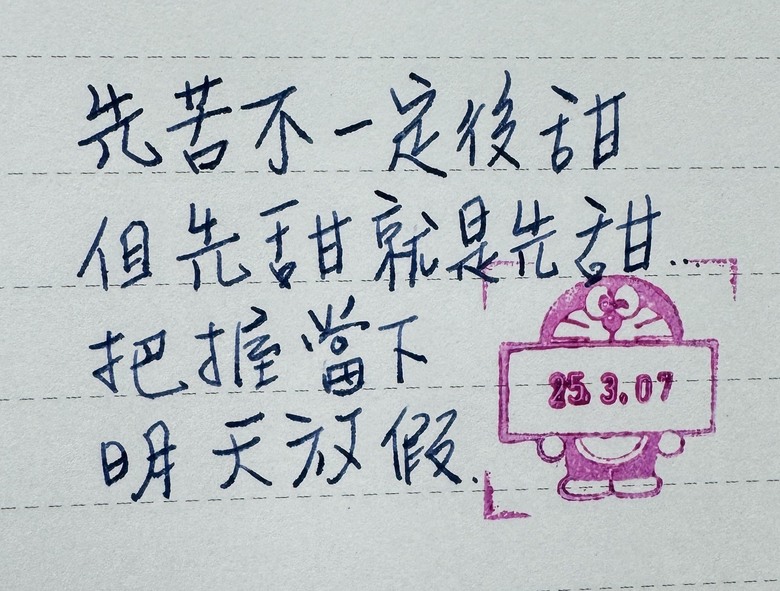 先苦不一定後甜
但先甜就是先甜...
把握當下
明天放假.
25.3.07